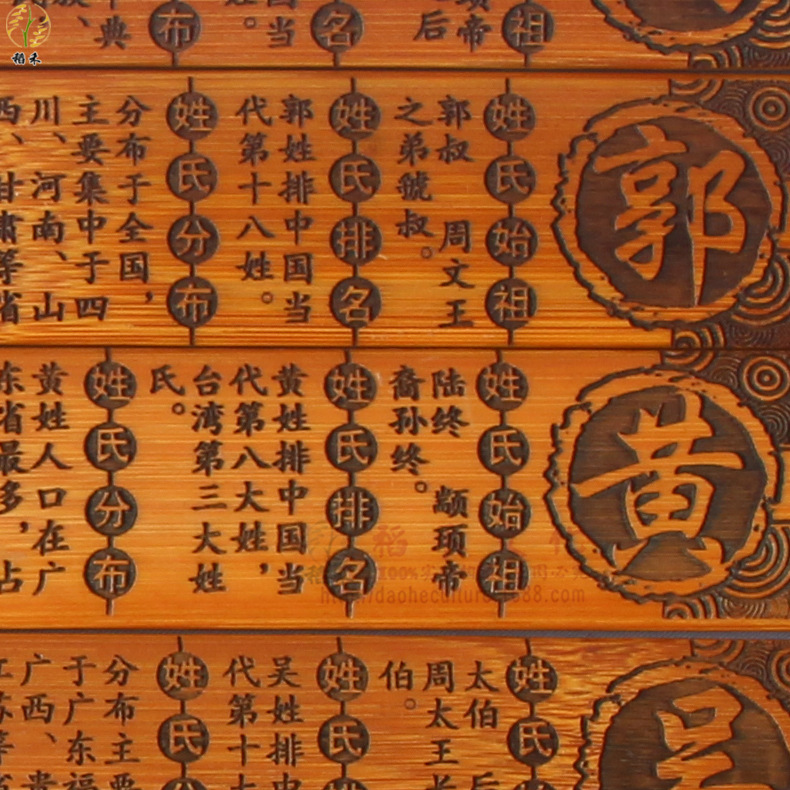 稻禾
祖
项帝
后
名
国当
姓。
布
典
郭
姓氏始祖
郭叔 周文王
之弟虢叔。
姓氏排名
郭姓排中国当
代第十八姓。
姓氏分布
分布于全国，
主要集中于四
川、河南、山
西、甘肃等省
黄
姓氏始祖
陆终 颛顼帝
裔孙终。
姓氏排名
黄姓排中国当
代第八大姓，
台湾第三大姓
氏。
姓氏分布
黄姓人口在广
东省最多，占
吴
姓氏
太伯 后
周太王长
伯。
姓氏
吴姓排中
代第十
姓氏分
分布主要
于广东福
广西、贵
江苏等省